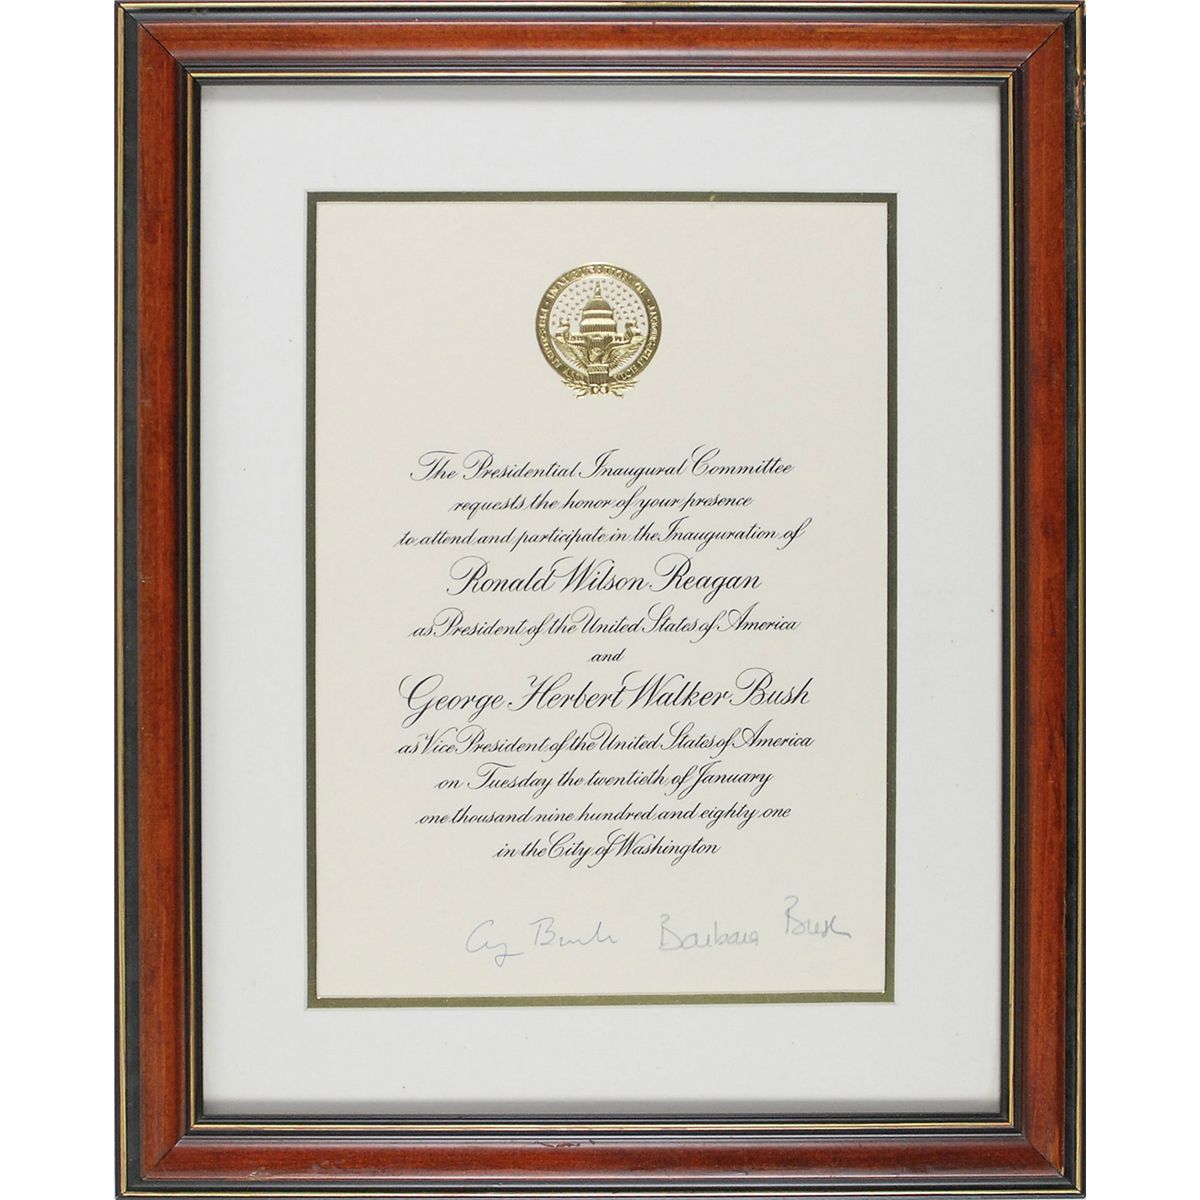 INAUGURATION OF
The Presidential Inaugural Committee
requests the honor of your presence
to attend and participate in the Inauguration of
Ronald Wilson Reagan
as President of the United States of America
and
George Herbert Walker Bush
as Vice President of the United States of America
on Tuesday the twentieth of January
one thousand nine hundred and eighty one
in the City of Washington
Bush Barbara Bush